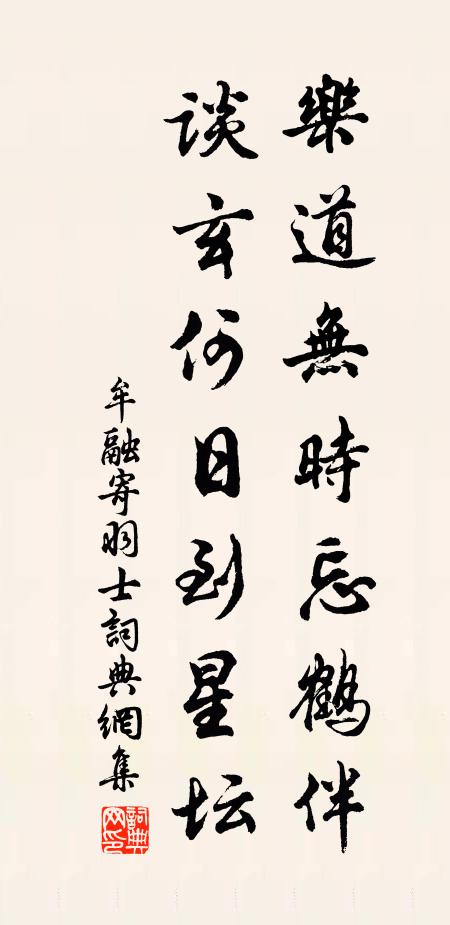 樂道無時忘鶴伴
谈玄何日到星坛
牟融寄羽士詞典網集
詞典网印